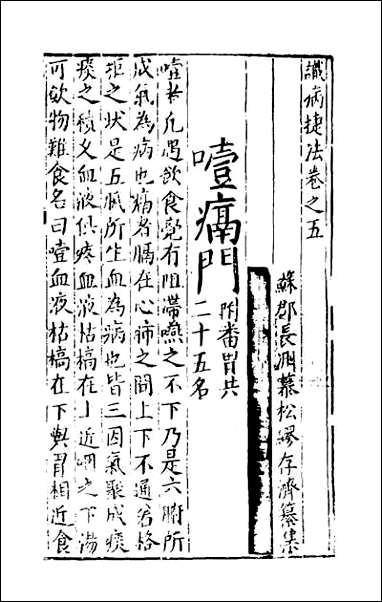 識病捷法卷之五
蘇郡長洲慕松繆存濟纂集
噎痛門
附番胃共
二十五名
噎者凡遇飲食覺有阻滯嚥之不下乃是六腑所
成氣為病也痛者膈在心肺之間上下不通若格
拒之狀是五臟所生血為病也皆三因氣聚成痰
痰之積久血液俱疼血液枯槁在上近咽之下湯
可飲物難食名曰噎血液枯槁在下與胃相近食